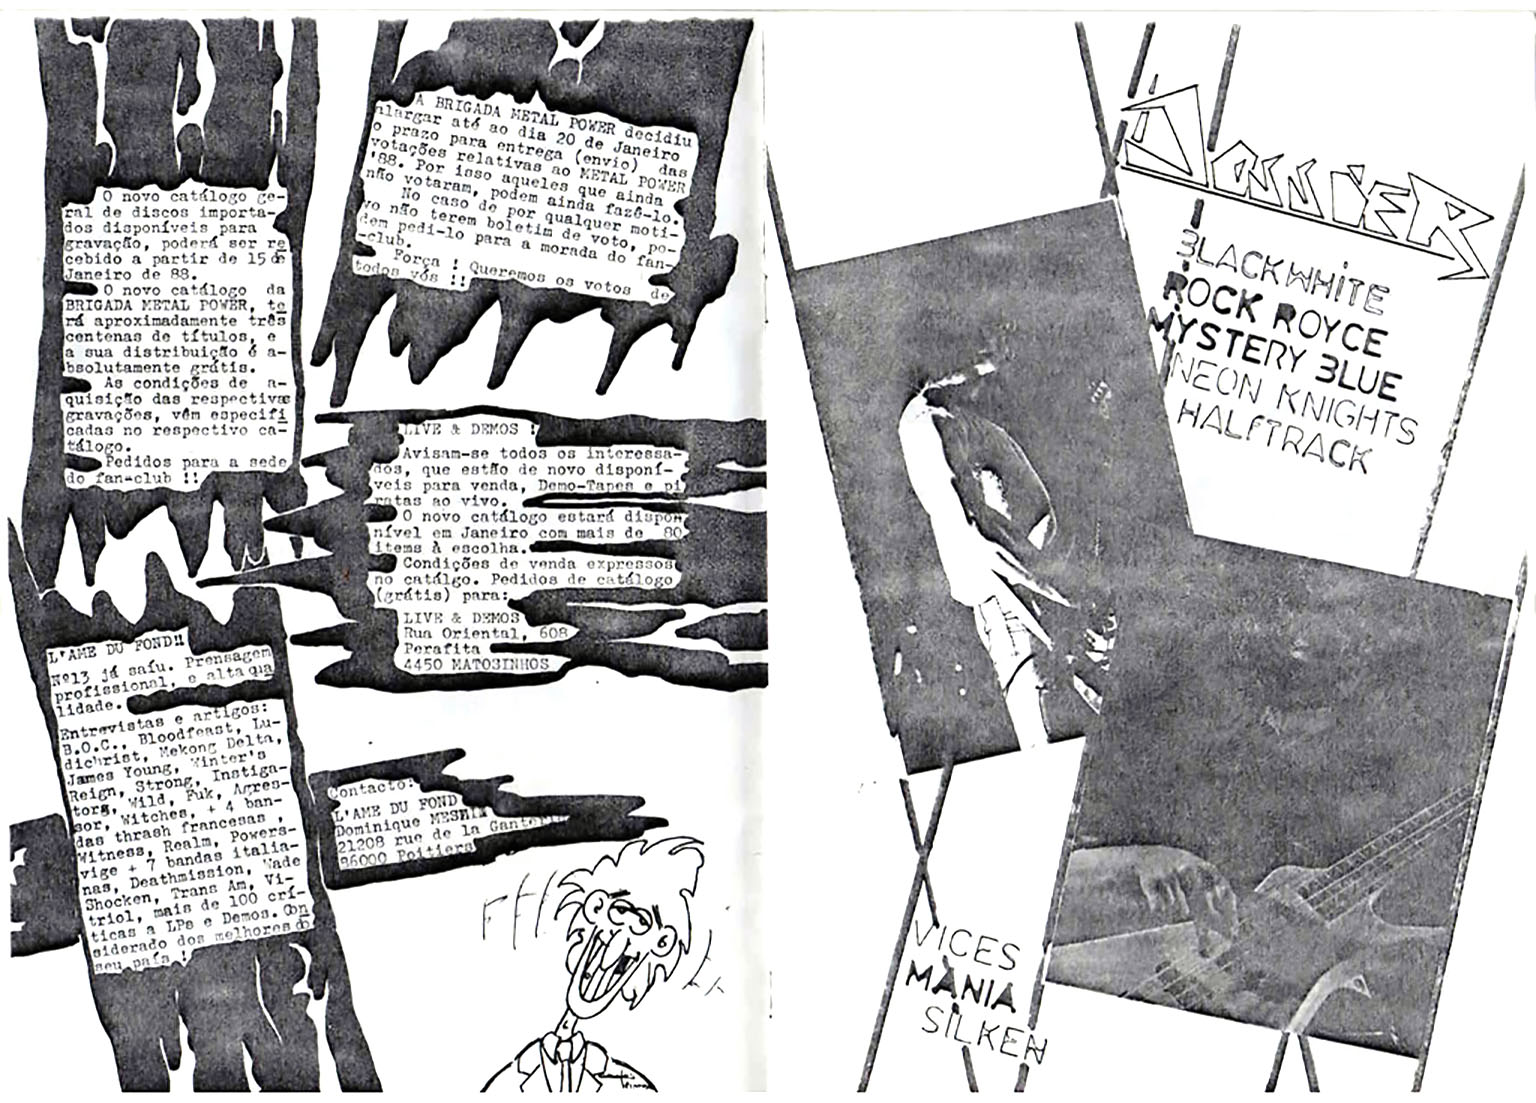 O novo catálogo ge-
ral de discos importa-
dos disponíveis para
gravação, poderá ser re
cebido a partir de 15 de
Janeiro de 88.
O novo catálogo da
BRIGADA METAL POWER, te
rá aproximadamente três
centenas de títulos, e
a sua distribuição é a-
bsolutamente grátis.
As condições de a-
quisição das respectivas
gravações, vêm especifi
cadas no respectivo ca-
tálogo.
Pedidos para a sede
do fan-club !!
A BRIGADA METAL POWER decidiu
alargar até ao dia 20 de Janeiro
o prazo para entrega (envio) das
votações relativas ao METAL POWER
'88. Por isso aqueles que ainda
não votaram, podem ainda fazê-lo.
No caso de por qualquer moti-
vo não terem boletim de voto, po-
dem pedi-lo para a morada do fan-
-club.
Força ! Queremos os votos de
todos vós !!
LIVE & DEMOS !
Avisam-se todos os interessa-
dos, que estão de novo disponí-
veis para venda, Demo-Tapes e pi
ratas ao vivo.
O novo catálogo estará dispon
nível em Janeiro com mais de 80
items à escolha.
Condições de venda expressos
no catálgo. Pedidos de catálogo
(grátis) para:
LIVE & DEMOS
Rua Oriental, 608
Perafita
4450 MATOSINHOS
L'AME DU FOND!!
Nº13 já saíu. Prensagem
profissional, e alta qua
lidade.
Entrevistas e artigos:
B.O.C., Bloodfeast, Lu-
dichrist, Mekong Delta,
James Young, Winter's
Reign, Strong, Instiga-
tors, Wild, Fuk, Agres-
sor, Witches, + 4 ban-
das thrash francesas ,
Witness, Realm, Powers-
vige + 7 bandas italia-
nas, Deathmission, Wade
Shocken, Trans Am, Vi-
triol, mais de 100 crí-
ticas a LPs e Demos. Con
siderado dos melhores do
seu país !
Contacto:
L'AME DU FOND
Dominique
21208 rue de la
86000 Poitiers
BLACKWHITE
ROCK ROYCE
MYSTERY BLUE
NEON KNIGHTS
HALFTRACK
VICES
MANIA
SILKEN